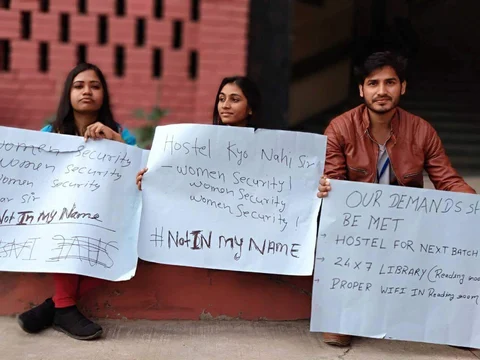 women security
women security
women security
or sir
Not In my Name
Hostel Kyo Nahi Sir
women security!
women security
women security!
#NotIN my NAME
OUR DEMANDS SH
BE MET
→ HOSTEL FOR NEXT BATCH
→ 24x7 LIBRARY (Reading room
→ PROPER WIFI IN Reading room